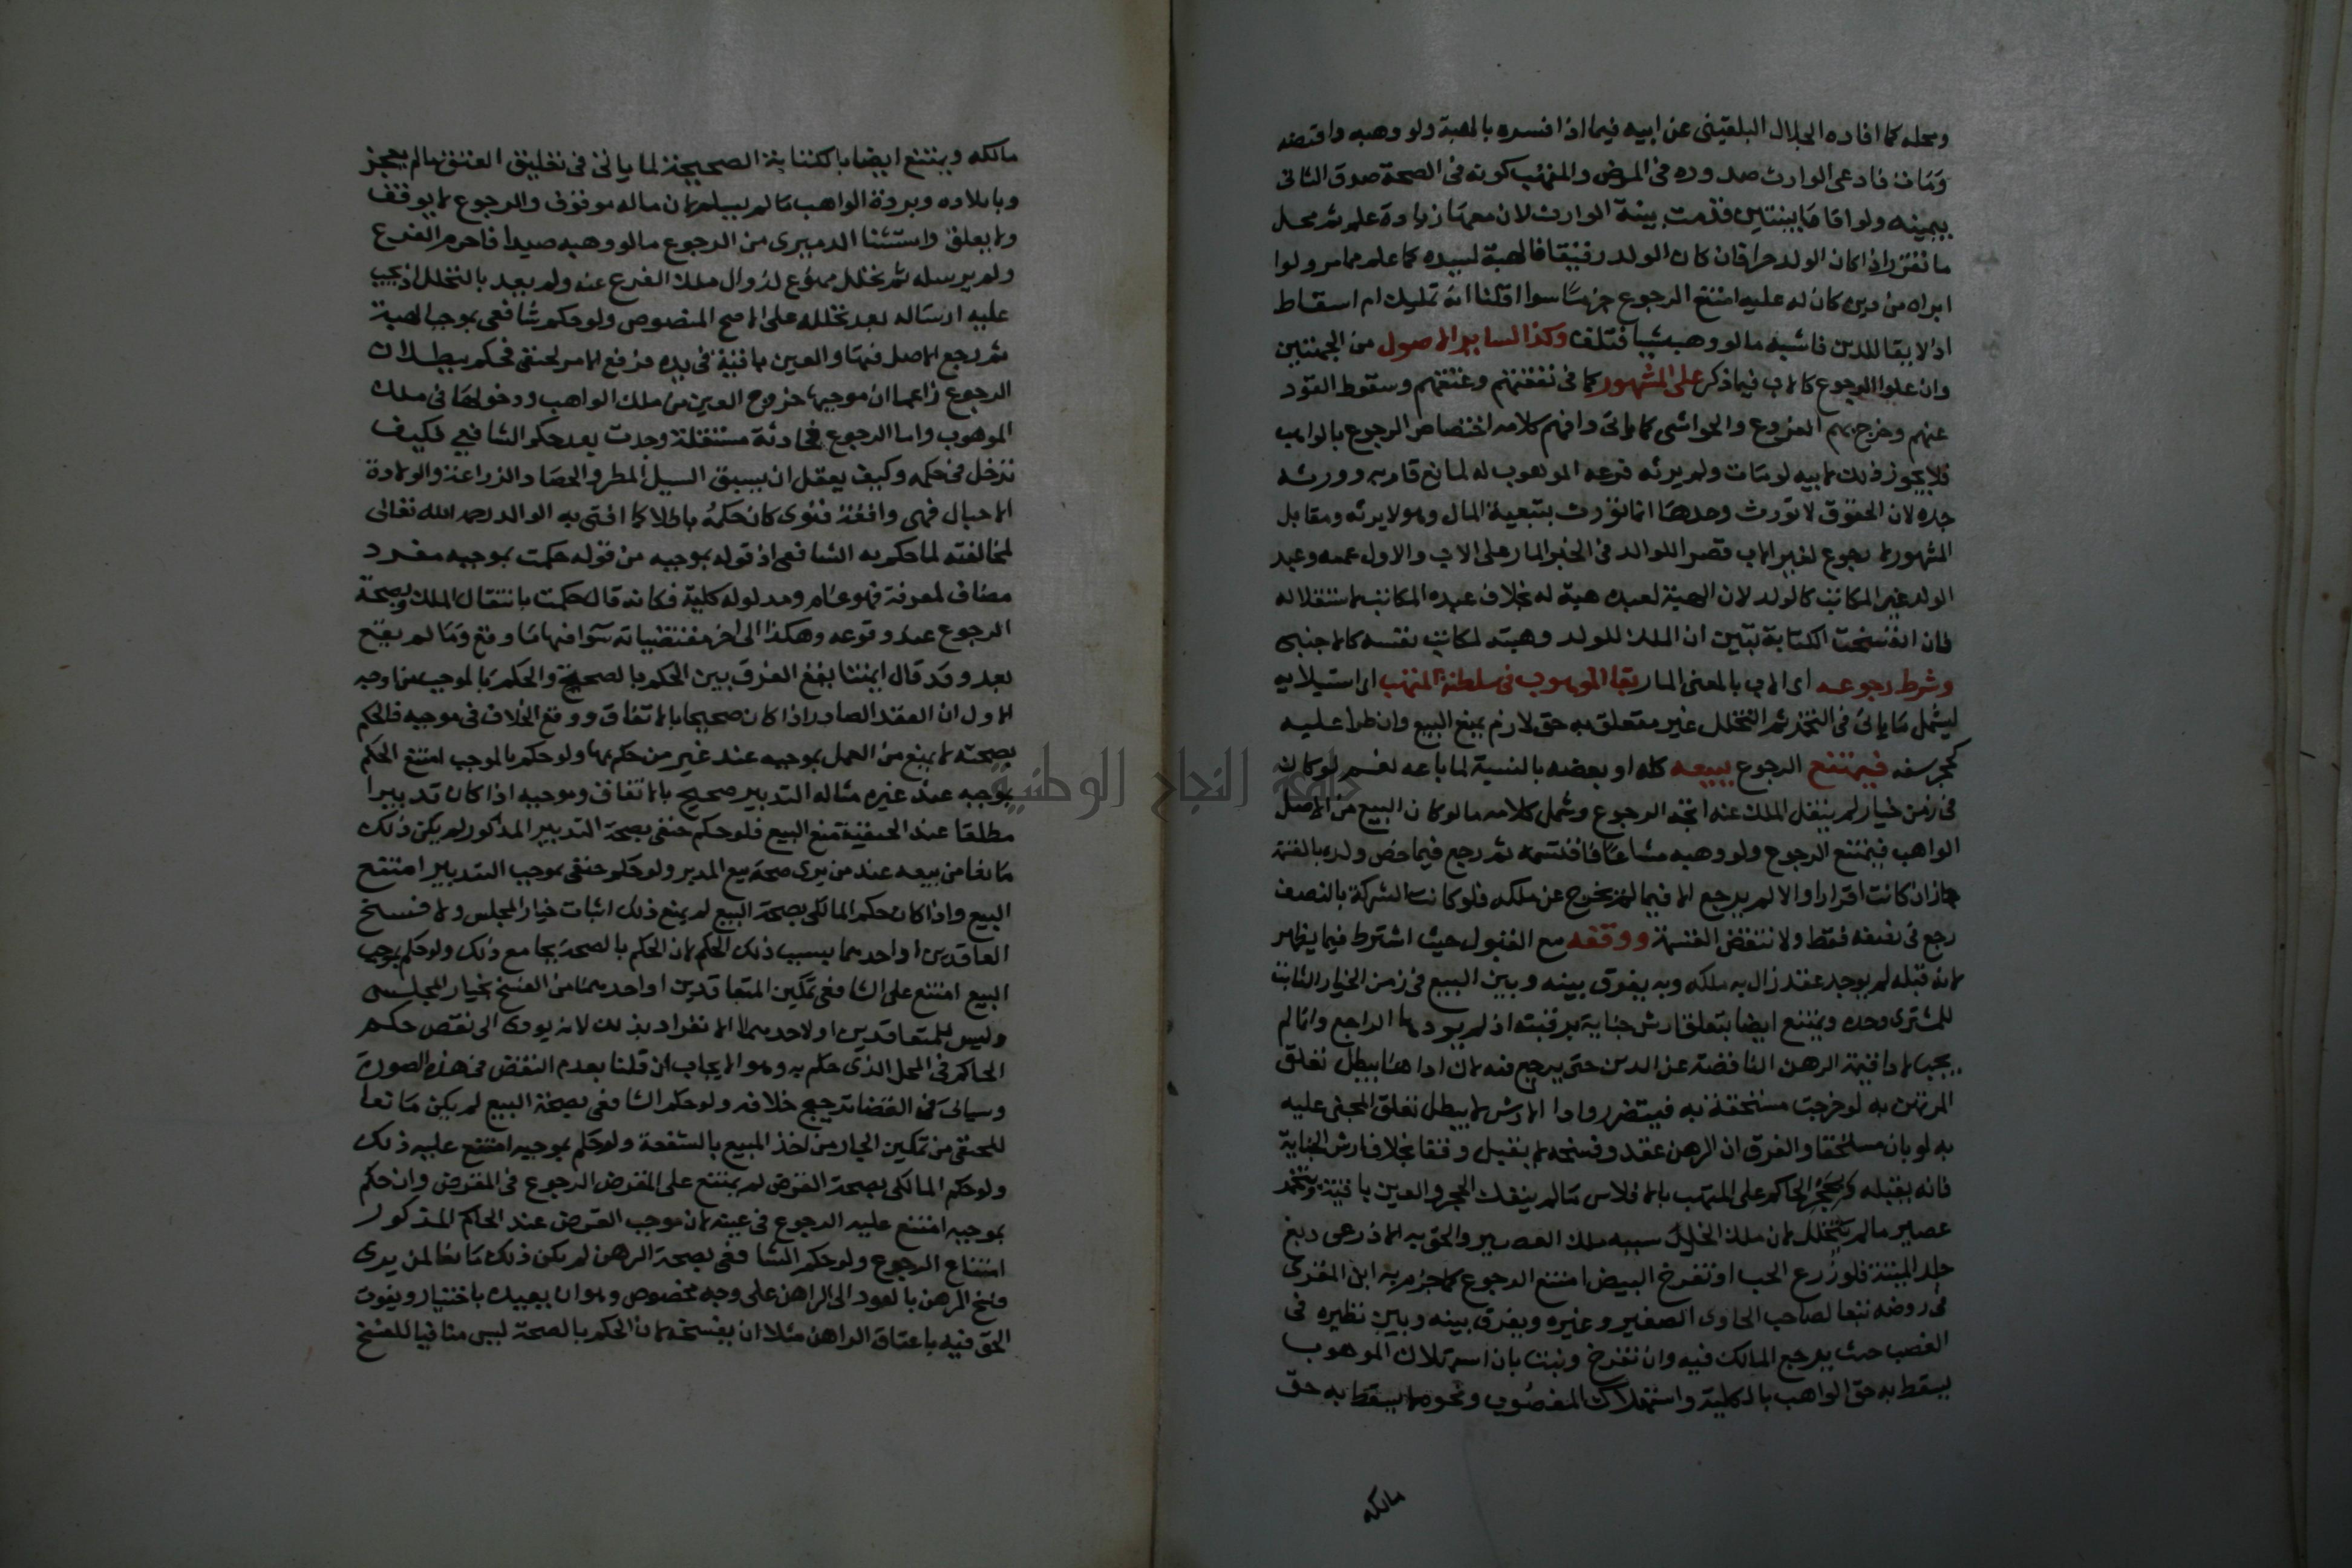 ومحله كما افاده الجلال البلقينى عن ابيه فيما اذا فسره بالهبة ولو وهبه واقبضه
ومات فادعى الوارث صدوره فى المرض والمتهب كونه فى الصحة صدق الثانى
بيمينه ولو اقاما بينتين قدمت بينة الوارث لان معها زيادة علم ثم محل
ما تقرر اذا كان الولد حرا فان كان الولد رقيقا فالهبة لسيده كما علم مما مر ولو
ابراه من دين كان له عليه امتنع الرجوع جزما سوا اقلنا انه تمليك ام اسقاط
اذ لا بقا للدين فاشبه ما لو وهبه شيا فتلف وكذا لساير الاصول من الجهتين
وان علوا الرجوع كالاب فيما ذكر على المشهور كما فى نفقتهم وعتقهم وسقوط القود
عنهم وخرج بهم الفروع والحواشى كما ياتى وافهم كلامه اختصاص الرجوع بالواهب
فلا يجوز ذلك لابيه لو مات ولم يرثه فرعه الموهوب له لمانع قام به وورثه
جده لان الحقوق لا تورث وحدها انما تورث بتبعية المال وهو لا يرثه ومقابل
المشهور لا رجوع لغير الاب قصر اللوالد فى الخبر المار على الاب والاول عممه وعبد
الولد غير المكاتب كالولد لان الهبة لعبده هبة له بخلاف عبده المكاتب لاستقلاله
فان انفسخت الكتابة تبين ان الملك للولد وهبته لمكاتب نفسه كالاجنبى
وشرط رجوعه اى الاب بالمعنى المار بقا الموهوب فى سلطنة المتهب اى استيلايه
ليشمل ما ياتى فى التخمر ثم التخلل غير متعلق به حق لازم يمنع البيع وان طرا عليه
كحجر سفه فيمتنع الرجوع ببيعه كله او بعضه بالنسبة لما باعه نعم لو كان
فى زمن خيار لم ينتقل الملك عنه اتجه الرجوع وشمل كلامه ما لو كان البيع من الاصل
الواهب فيمتنع الرجوع ولو وهبه مشاعا فاقتسمه ثم رجع فيما خص ولده بالقسمة
جاز اذ كانت افرازا والا لم يرجع الا فيما لم يخرج عن ملكه فلو كانت الشركة بالنصف
رجع فى نصفه فقط ولا تنتقض القسمة ووقفه مع القبول حيث اشترط فيما يظهر
لانه قبله لم يوجد عقد زال به ملكه وبه يفرق بينه وبين البيع فى زمن الخيار الثابت
للمشترى وحده ويمتنع ايضا بتعلق ارش جناية برقبته اذ لم يودها الراجع وانما لم
يجب لادا قيمة الرهن الناقصة عن الدين حتى يرجع فيه لان اداها يبطل تعلق
المرتهن به لو خرجت مستحقة به فيتضرر وادا الارش لا يبطل تعلق المجنى عليه
به لو بان مستحقا والفرق ان الرهن عقد وفسخه لا يقبل وقفا بخلاف ارش الجناية
فانه يقبله وبحجر الحاكم على المتهب بالافلاس ما لم ينفك الحجر والعين باقية وبتخمر
عصير ما لم يتخلل لان ملك الخل سببه ملك العصير والحق به الاذرعى دبغ
جلد الميتة فلو زرع الحب او تفرخ البيض امتنع الرجوع كما جزم به ابن المقرى
فى روضه تبعا لصاحب الحاوى الصغير وغيره ويفرق بينه وبين نظيره فى
الغصب حيث يرجع المالك فيه وان تفرخ ونبت بان استهلاك الموهوب
يسقط به حق الواهب بالكلية واستهلاك المغصوب ونحوه لا يسقط به حق
مالكه
مالكه ويمتنع ايضا بالكتابة الصحيحة لما ياتى فى تعليق العتق ما لم يعجز
وبايلاده وبردة الواهب ما لم يسلم لان ماله موقوف والرجوع لا يوقف
ولا يعلق واستثنا الدميرى من الرجوع ما لو وهبه صيدا فاحرم الفرع
ولم يرسله ثم تحلل ممنوع لزوال ملك الفرع عنه ولم يعد بالتحلل اذ يجب
عليه ارساله بعد تحلله على الاصح المنصوص ولو حكم شافعى بموجب الهبة
ثم رجع الاصل فيها والعين باقية فى يده فرفع الامر لحنفى فحكم ببطلان
الرجوع زاعما ان موجبها خروج العين من ملك الواهب ودخولها فى ملك
الموهوب واما الرجوع فحادثة مستقلة وجدت بعد حكم الشافعى فكيف
تدخل فى حكمه وكيف يعقل ان يسبق السيل المطر والحصاد الزراعة والولادة
الاحبال فهى واقعة فتوى كان حكمه باطلا كما افتى به الوالد رحمه الله تعالى
لمخالفته لما حكم به الشافعى اذ قوله بموجبه من قوله حكمت بموجبه مفرد
مضاف لمعرفة فهو عام ومدلوله كلية فكانه قال حكمت بانتقال الملك وبصحة
الرجوع عند وقوعه وهكذا الى اخر مقتضياته سوا فيها ما وقع وما لم يقع
بعد وقد قال ايمتنا يقع الفرق بين الحكم بالصحة والحكم بالموجب من اوجه
الاول ان العقد الصادر اذا كان صحيحا بالاتفاق ووقع الخلاف فى موجبه فالحكم
بصحته لا يمنع من العمل بموجبه عند غير من حكم بها ولو حكم بالموجب امتنع الحكم
بموجبه عند غيره مثاله التدبير صحيح بالاتفاق وموجبه اذا كان تدبيرا
مطلقا عند الحنفية منع البيع فلو حكم حنفى بصحة التدبير المذكور لم يكن ذلك
مانعا من بيعه عند من يرى صحة بيع المدبر ولو حكم حنفى بموجب التدبير امتنع
البيع واذا كان حكم المالكى بصحة البيع لم يمنع ذلك اثبات خيار المجلس ولا فسخ
العاقدين او احدهما بسبب ذلك الحكم لان الحكم بالصحة يجامع ذلك ولو حكم بموجب
البيع امتنع على الشافعى تمكين المتعاقدين او احدهما من الفسخ بخيار المجلس
وليس للمتعاقدين او لاحدهما الانفراد بذلك لانه يودى الى نقض حكم
الحاكم فى المحل الذى حكم به وهو الايجاب ان قلنا بعدم النقض فى هذه الصورة
وسياتى فى القضا ترجيح خلافه ولو حكم الشافعى بصحة البيع لم يكن مانعا
للحنفى من تمكين الجار من اخذ المبيع بالشفعة ولو حكم بموجبه امتنع عليه ذلك
ولو حكم المالكى بصحة القرض لم يمتنع على المقرض الرجوع فى المقرض وان حكم
بموجبه امتنع عليه الرجوع فى عينه لان موجب القرض عند الحاكم المذكور
امتناع الرجوع ولو حكم الشافعى بصحة الرهن لم يكن ذلك مانعا لمن يرى
فسخ الرهن بالعود الى الراهن على وجه مخصوص وهو ان يعيده باختياره ويفوت
الحق فيه باعتاق الراهن مثلا ان يفسخه لان الحكم بالصحة ليس منافيا للفسخ
جامعة النجاح الوطنية